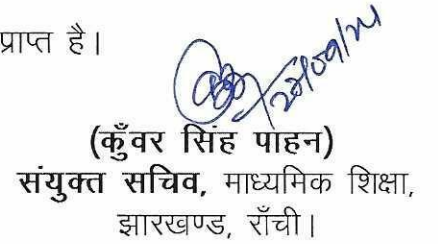 प्राप्त है।
(कुँवर सिंह पाहन)
संयुक्त सचिव, माध्यमिक शिक्षा,
झारखण्ड, राँची।